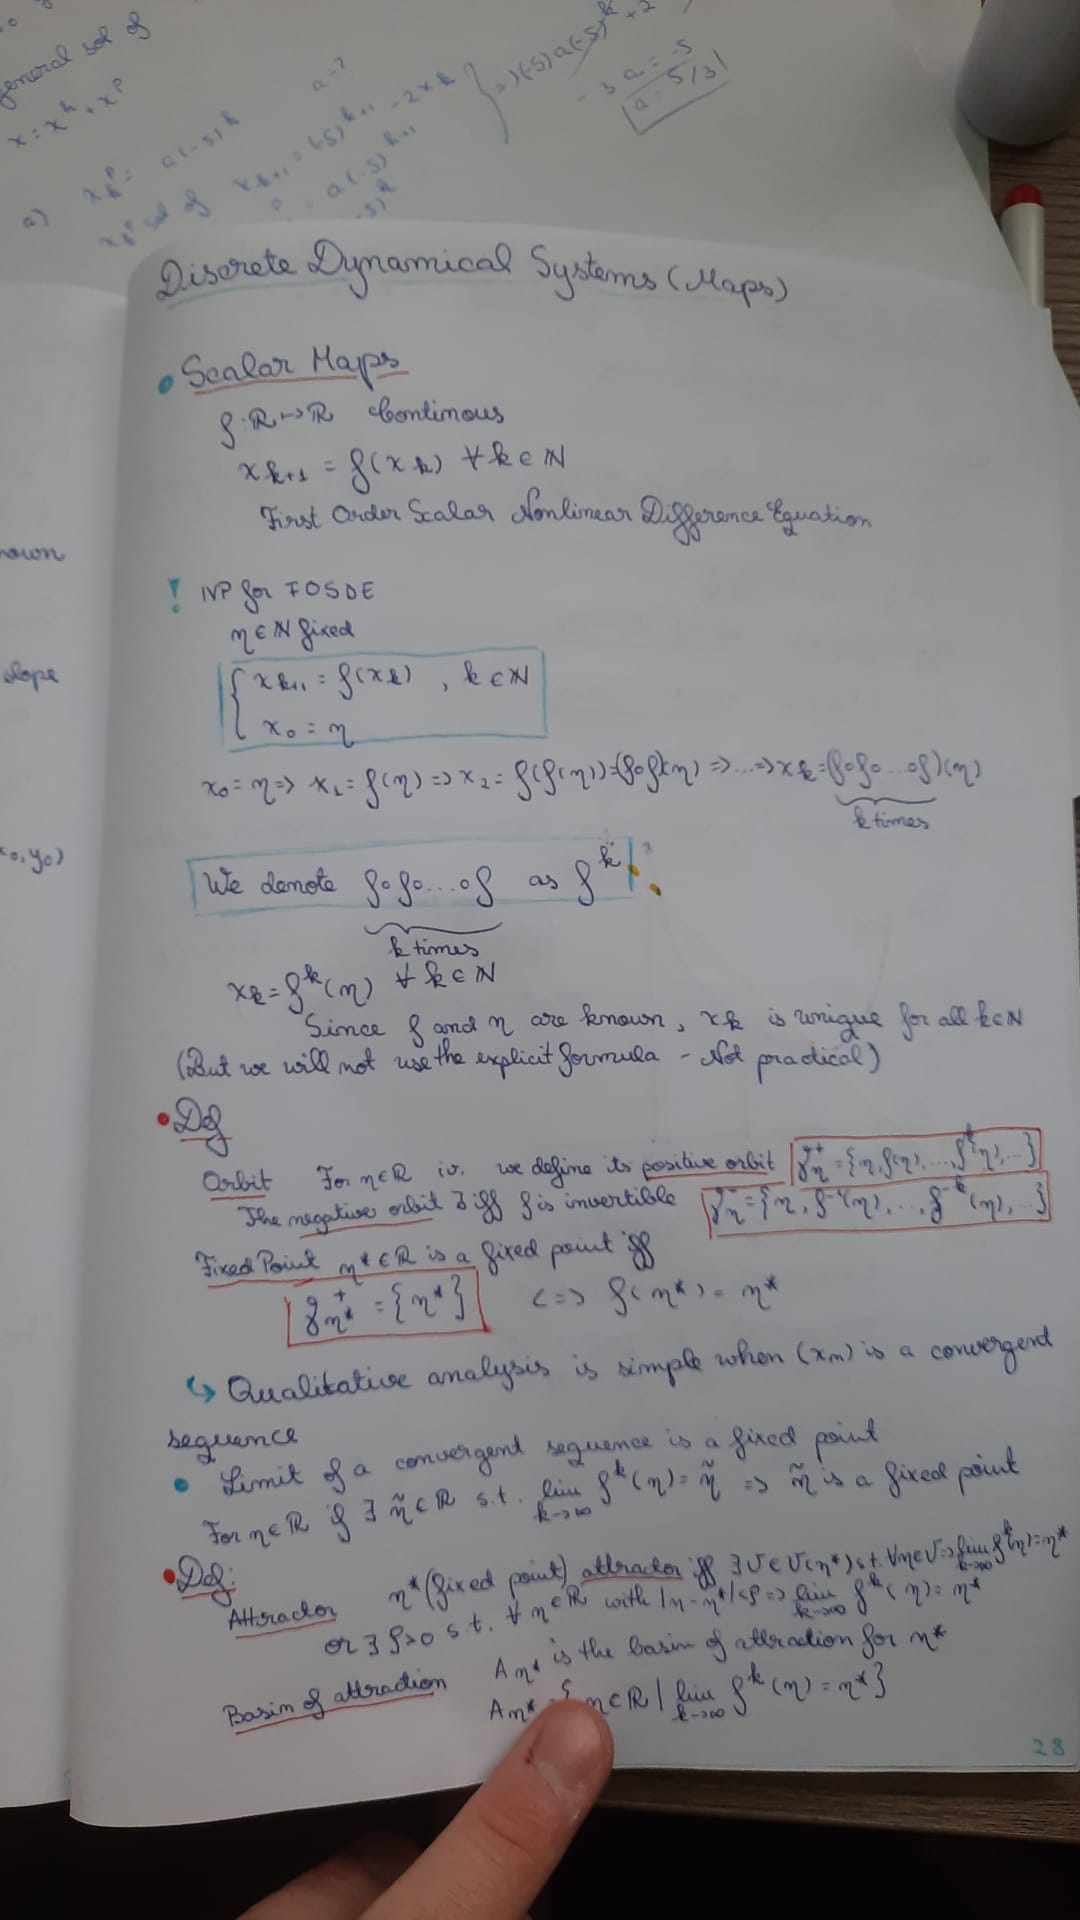 general sol of
x = x^h + x^p
a) x_k^p = a(-5)^k a=?
x_k^p sol of x_{k+1} = (-5)^{k+1} - 2x_k
= a(-5)^{k+1}
-3a = -5
a = 5/3
nown
slope
x0, y0)
Discrete Dynamical Systems (Maps)
• Scalar Maps
f: ℝ ↦ ℝ Continous
x_{k+1} = f(x_k) ∀ k ∈ ℕ
First Order Scalar Nonlinear Difference Equation
! IVP for FOSDE
η ∈ ℕ fixed
{ x_{k+1} = f(x_k) , k ∈ ℕ
x_0 = η
x_0 = η => x_1 = f(η) => x_2 = f(f(η)) = (f∘f)(η) => ... => x_k = (f∘f∘...∘f)(η)
k times
We denote f∘f∘...∘f as f^k !
k times
x_k = f^k(η) ∀ k ∈ ℕ
Since f and η are known, x_k is unique for all k ∈ ℕ
(But we will not use the explicit formula - Not practical)
• Def
Orbit For η ∈ ℝ iv. we define its positive orbit γ_η^+ = {η, f(η), ..., f^k(η), ...}
The negative orbit ∃ iff f is invertible γ_η^- = {η, f^{-1}(η), ..., f^{-k}(η), ...}
Fixed Point η* ∈ ℝ is a fixed point iff
γ_{η*}^+ = {η*} <=> f(η*) = η*
↳ Qualitative analysis is simple when (x_n) is a convergent
sequence
• Limit of a convergent sequence is a fixed point
For η ∈ ℝ if ∃ η̃ ∈ ℝ s.t. lim_{k→∞} f^k(η) = η̃ => η̃ is a fixed point
• Def:
Attractor η* (fixed point) attractor iff ∃ V ∈ V(η*) s.t. ∀ η ∈ V => lim_{k→∞} f^k(η) = η*
or ∃ ρ>0 s.t. ∀ η ∈ ℝ with |η - η*| < ρ => lim_{k→∞} f^k(η) = η*
Basin of attraction A_{η*} is the basin of attraction for η*
A_{η*} = { η ∈ ℝ | lim_{k→∞} f^k(η) = η* }
28